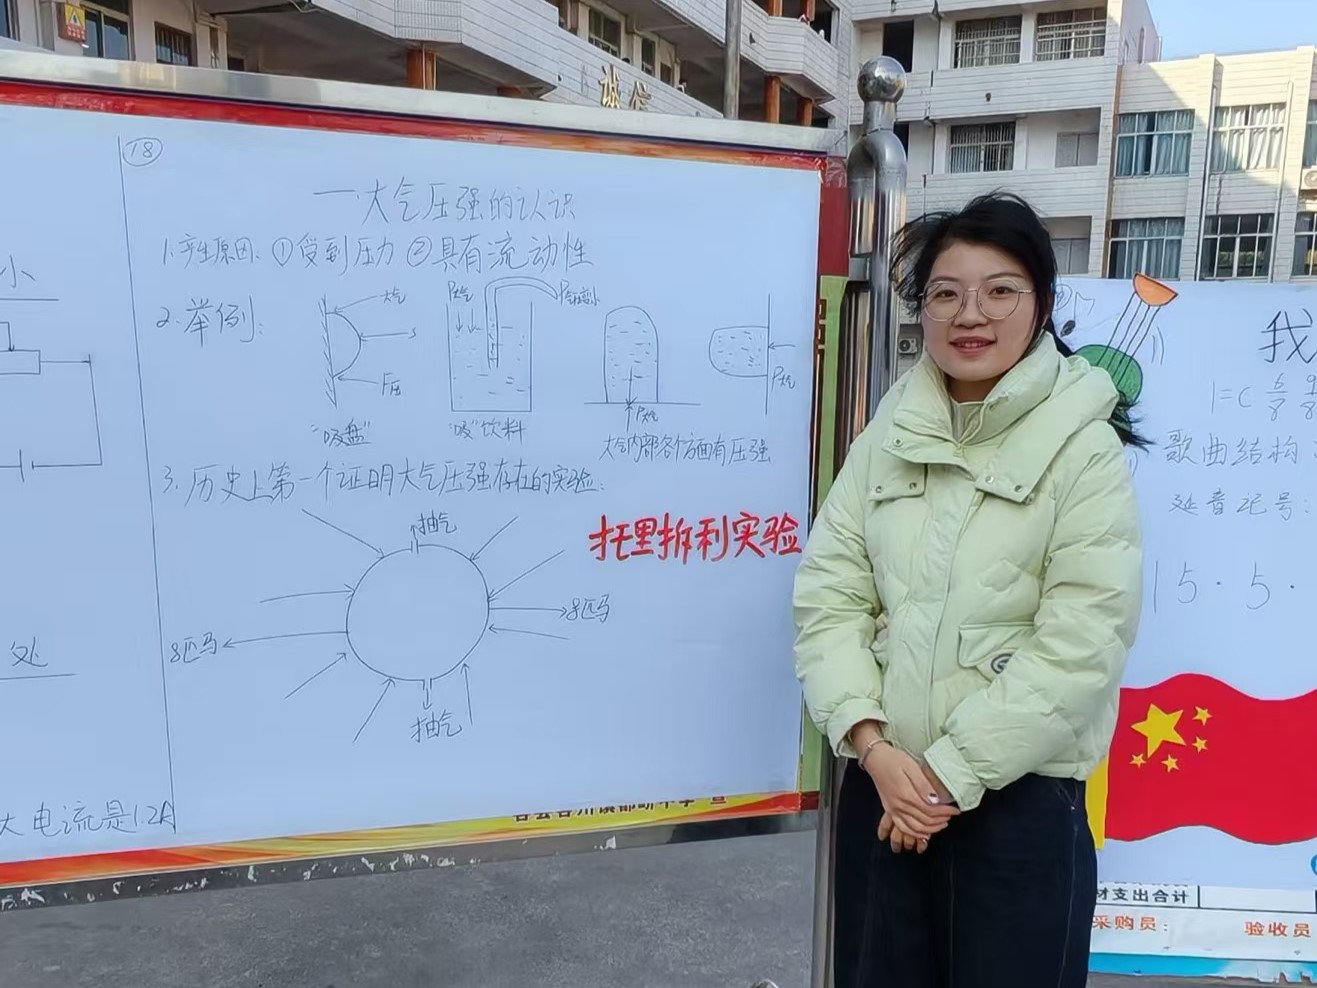 诚信
18
一.大气压强的认识
1.产生原因: ①受到压力 ②具有流动性
2.举例:
大气
F压
"吸盘"
P大气
P气减小
"吸"饮料
P大气
P大气
大气内部各个方面有压强
3.历史上第一个证明大气压强存在的实验:
托里拆利实验
抽气
8匹马
8匹马
抽气
小
处
大电流是1.2A
我
1=C 6/8 9/8
歌曲结构
延音记号:
5· 5·
材支出合计
采购员:
验收员